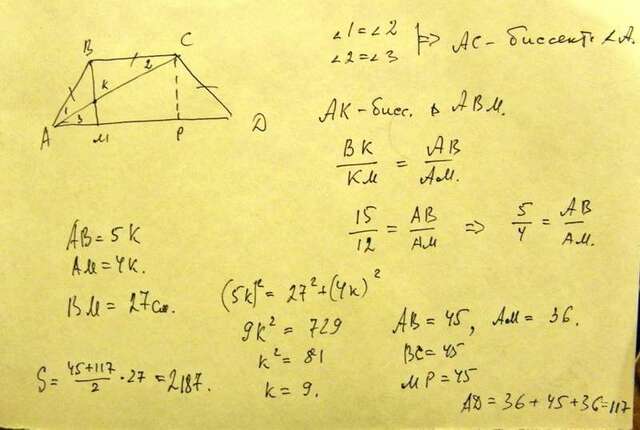 ∠1 = ∠2
∠2 = ∠3
=> AC - биссект. ∠A.
B
C
A
D
K
M
P
1
2
3
AK - бисс. △ ABM.
BK/KM = AB/AM.
15/12 = AB/AM => 5/4 = AB/AM.
AB = 5K
AM = 4K.
BM = 27см.
(5k)² = 27² + (4k)²
9k² = 729
k² = 81
k = 9.
AB = 45, AM = 36.
BC = 45
MP = 45
AD = 36 + 45 + 36 = 117
S = (45+117)/2 · 27 = 2187.